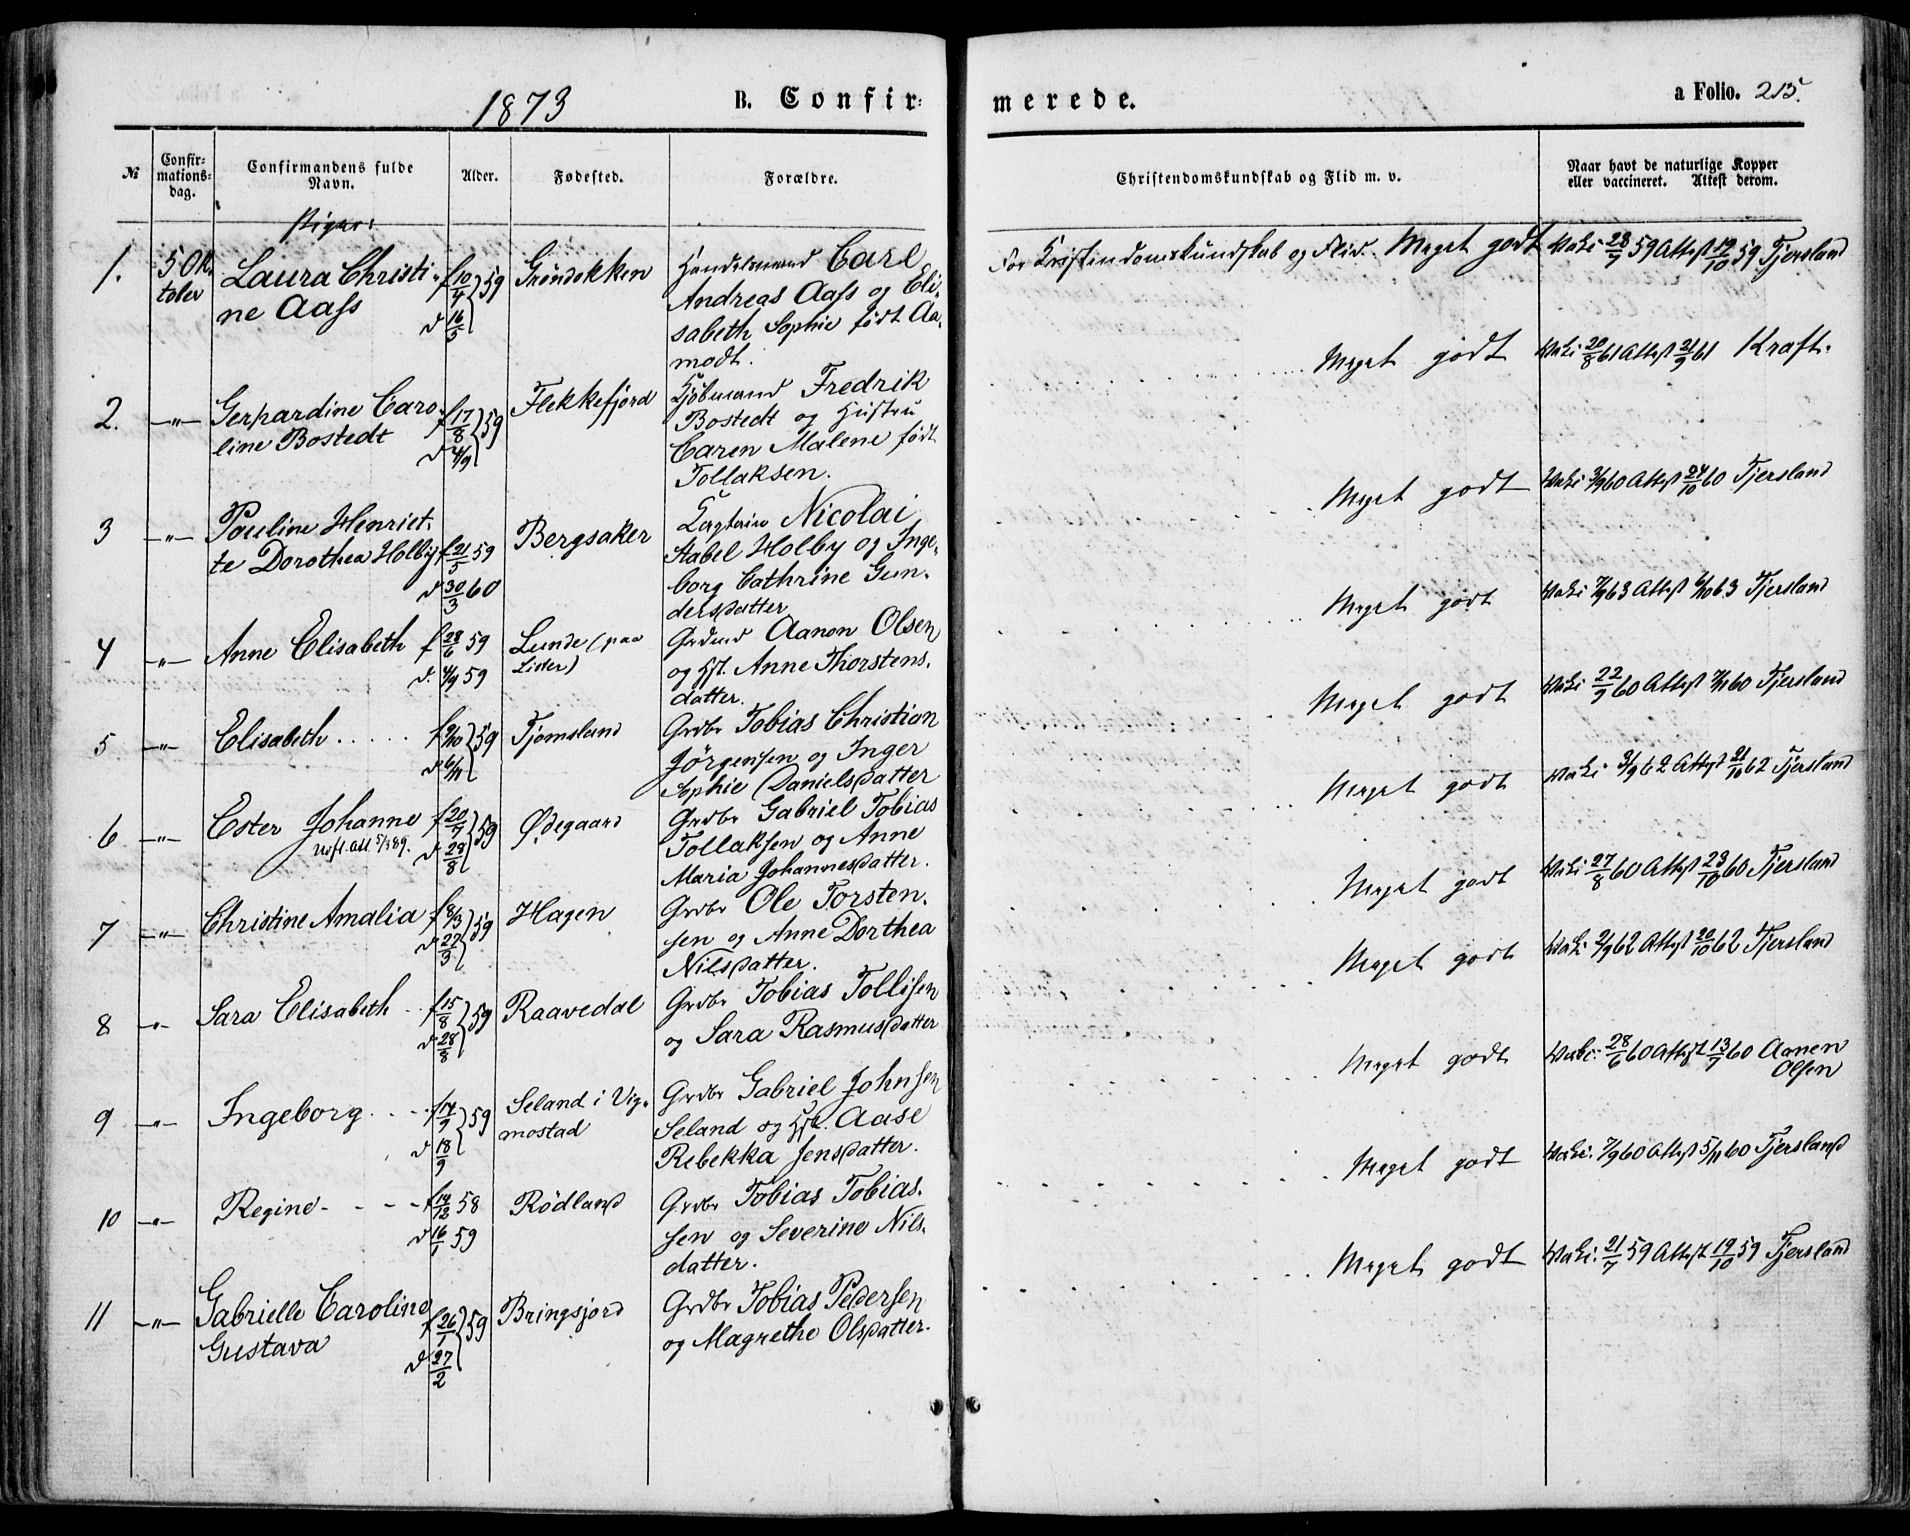 1873 B. Confirmerede. a Folio. 215.
№ Confirmationsdag. Confirmandens fulde Navn. Alder. Fødested. Forældre. Christendomskundskab og Flid m. v. Naar havt de naturlige Kopper eller vaccineret. Attest derom.
Piger:
1. 5 Ok- Laura Christi- f 10/4 } 59 Grøndokken Handelsmand Carl For Kristendomskundskab og Flid. Meget godt Vaki 28/7 59 Attest 19/10 59 Tjersland
tober ne Aass d 16/5 Andreas Aass og Eli-
sabeth Sophie født Aa-
modt.
2. —"— Gerhardine Caro- f 17/8 } 59 Flekkefjord Kjøbmand Fredrik Meget godt Vaki 20/8 61 Attest 21/9 61 Kraft.
line Bostedt d 4/9 Bostedt og Hustru
Caren Malene født
Tollaksen.
3 —"— Pauline Henriet- f 21/5 59 Bergsaker Captain Nicolai Meget godt Vaki 3/9 60 Attest 24/10 60 Tjersland
te Dorothea Holby d 30/3 60 Stabel Holby og Inge-
borg Cathrine Gun-
dersdatter
4 —"— Anne Elisabeth f 28/6 59 Lunde (paa Grdmd Aanon Olsen Meget godt Vaki 7/9 63 Attest 6/10 63 Tjersland
d. 4/9 59 Lister) og Hst. Anne Thorstens-
datter.
5 —"— Elisabeth f 9/10 } 59 Tjomsland Grdbr Tobias Christian Meget godt Vaki 22/9 60 Attest 60 Tjersland
d 6/11 Jörgensen og Inger
Sophie Danielsdatter
6 —"— Ester Johanne f 20/7 } 59 Ødegaard Grdbr Gabriel Tobias Meget godt Vaki 3/9 62 Attest 21/10 62 Tjersland
Udst. att 5/3 89. d 28/8 Tollaksen og Anne
Maria Johannesdatter.
7 —"— Christine Amalia f 8/3 } 59 Hagen Grdbr Ole Torsten- Meget godt Vaki 27/8 60 Attest 23/10 60 Tjersland
d 27/3 sen og Anne Dorthea
Nilsdatter.
8 —"— Sara Elisabeth f 15/8 } 59 Raavedal Grdbr Tobias Tollisen Meget godt Vaki 2/9 62 Attest 20/10 62 Tjersland
d 28/8 og Sara Rasmusdatter
9 —"— Ingeborg f 14/9 } 59 Seland i Vig- Grdbr Gabriel Johnsen Meget godt 28/6 60 Attest 13/7 60 Aanen
d 18/9 mostad Seland og Hst. Aase Olsen
Rebekka Jensdatter.
10 —"— Regine f 14/12 58 Rödland Grdbr Tobias Tobias- Meget godt Vaki. 7/9 60 Attest 5/11 60 Tjersland
d 16/1 59 sen og Severine Nils-
datter.
11 —"— Gabrielle Caroline f 26/1 } 59 Bringsjord Grdbr Tobias Pedersen Meget godt Vaki. 21/7 59 Attest 19/10 59 Tjersland
Gustava d 27/2 og Magrethe Olsdatter.